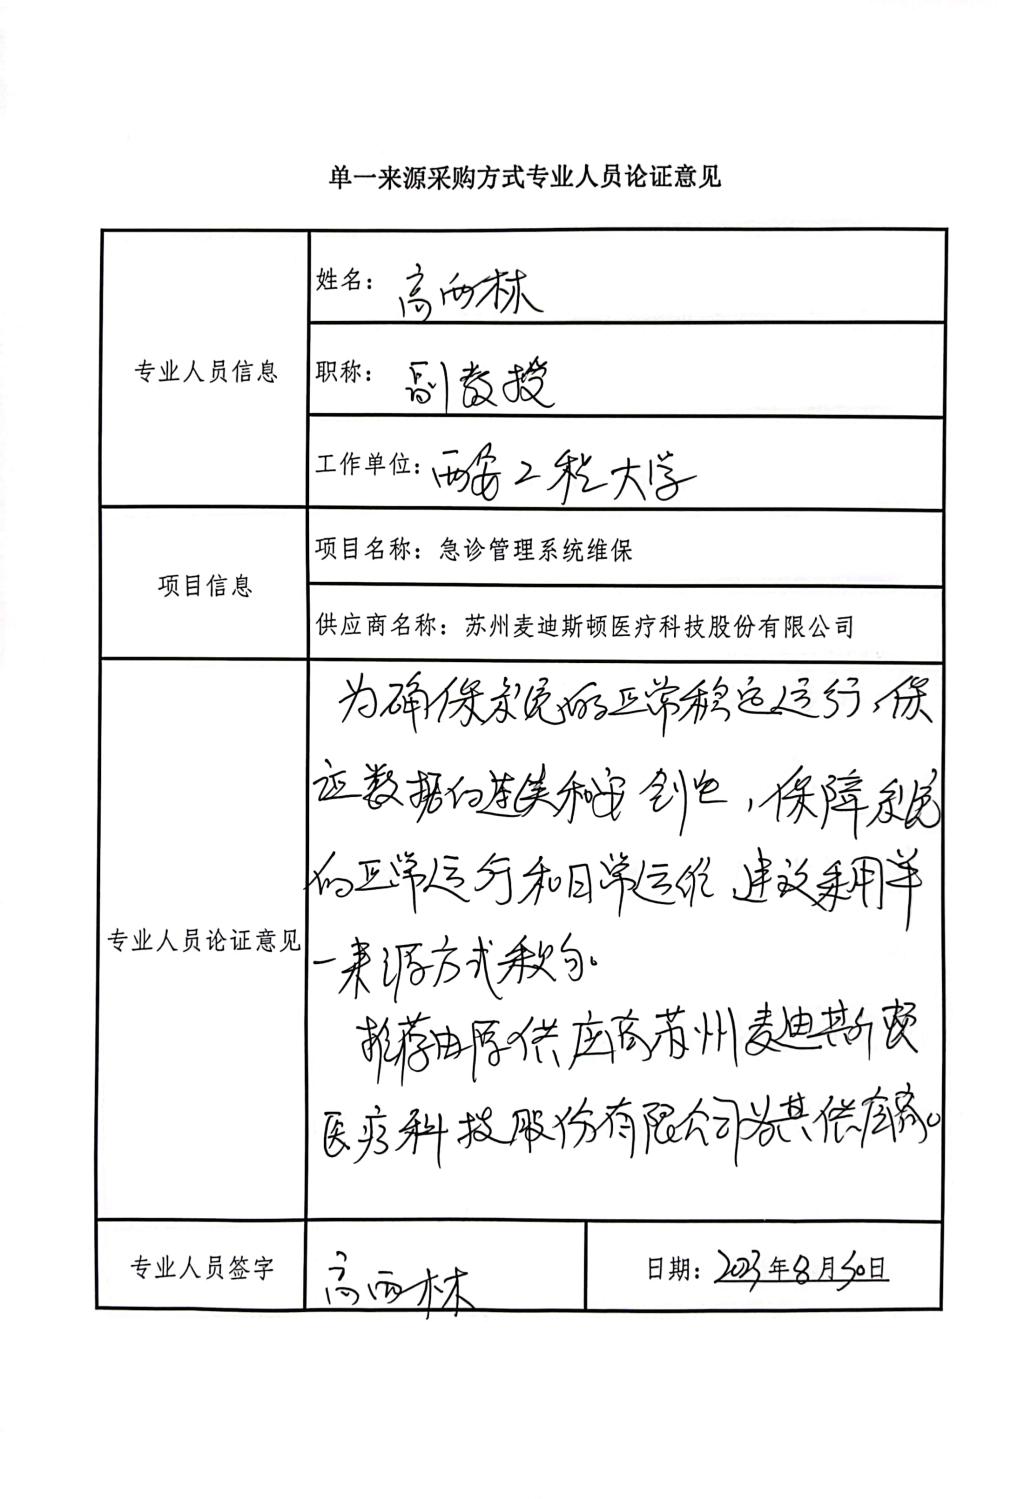 单一来源采购方式专业人员论证意见
专业人员信息
姓名：高西林
职称：副教授
工作单位：西安工程大学
项目信息
项目名称：急诊管理系统维保
供应商名称：苏州麦迪斯顿医疗科技股份有限公司
专业人员论证意见
为确保系统的正常稳定运行，保
证数据的连续和安全性，保障系统
的正常运行和日常运维，建议采用单
一来源方式采购。
推荐由原供应商苏州麦迪斯顿
医疗科技股份有限公司为其供应商。
专业人员签字
高西林
日期：2023年8月30日